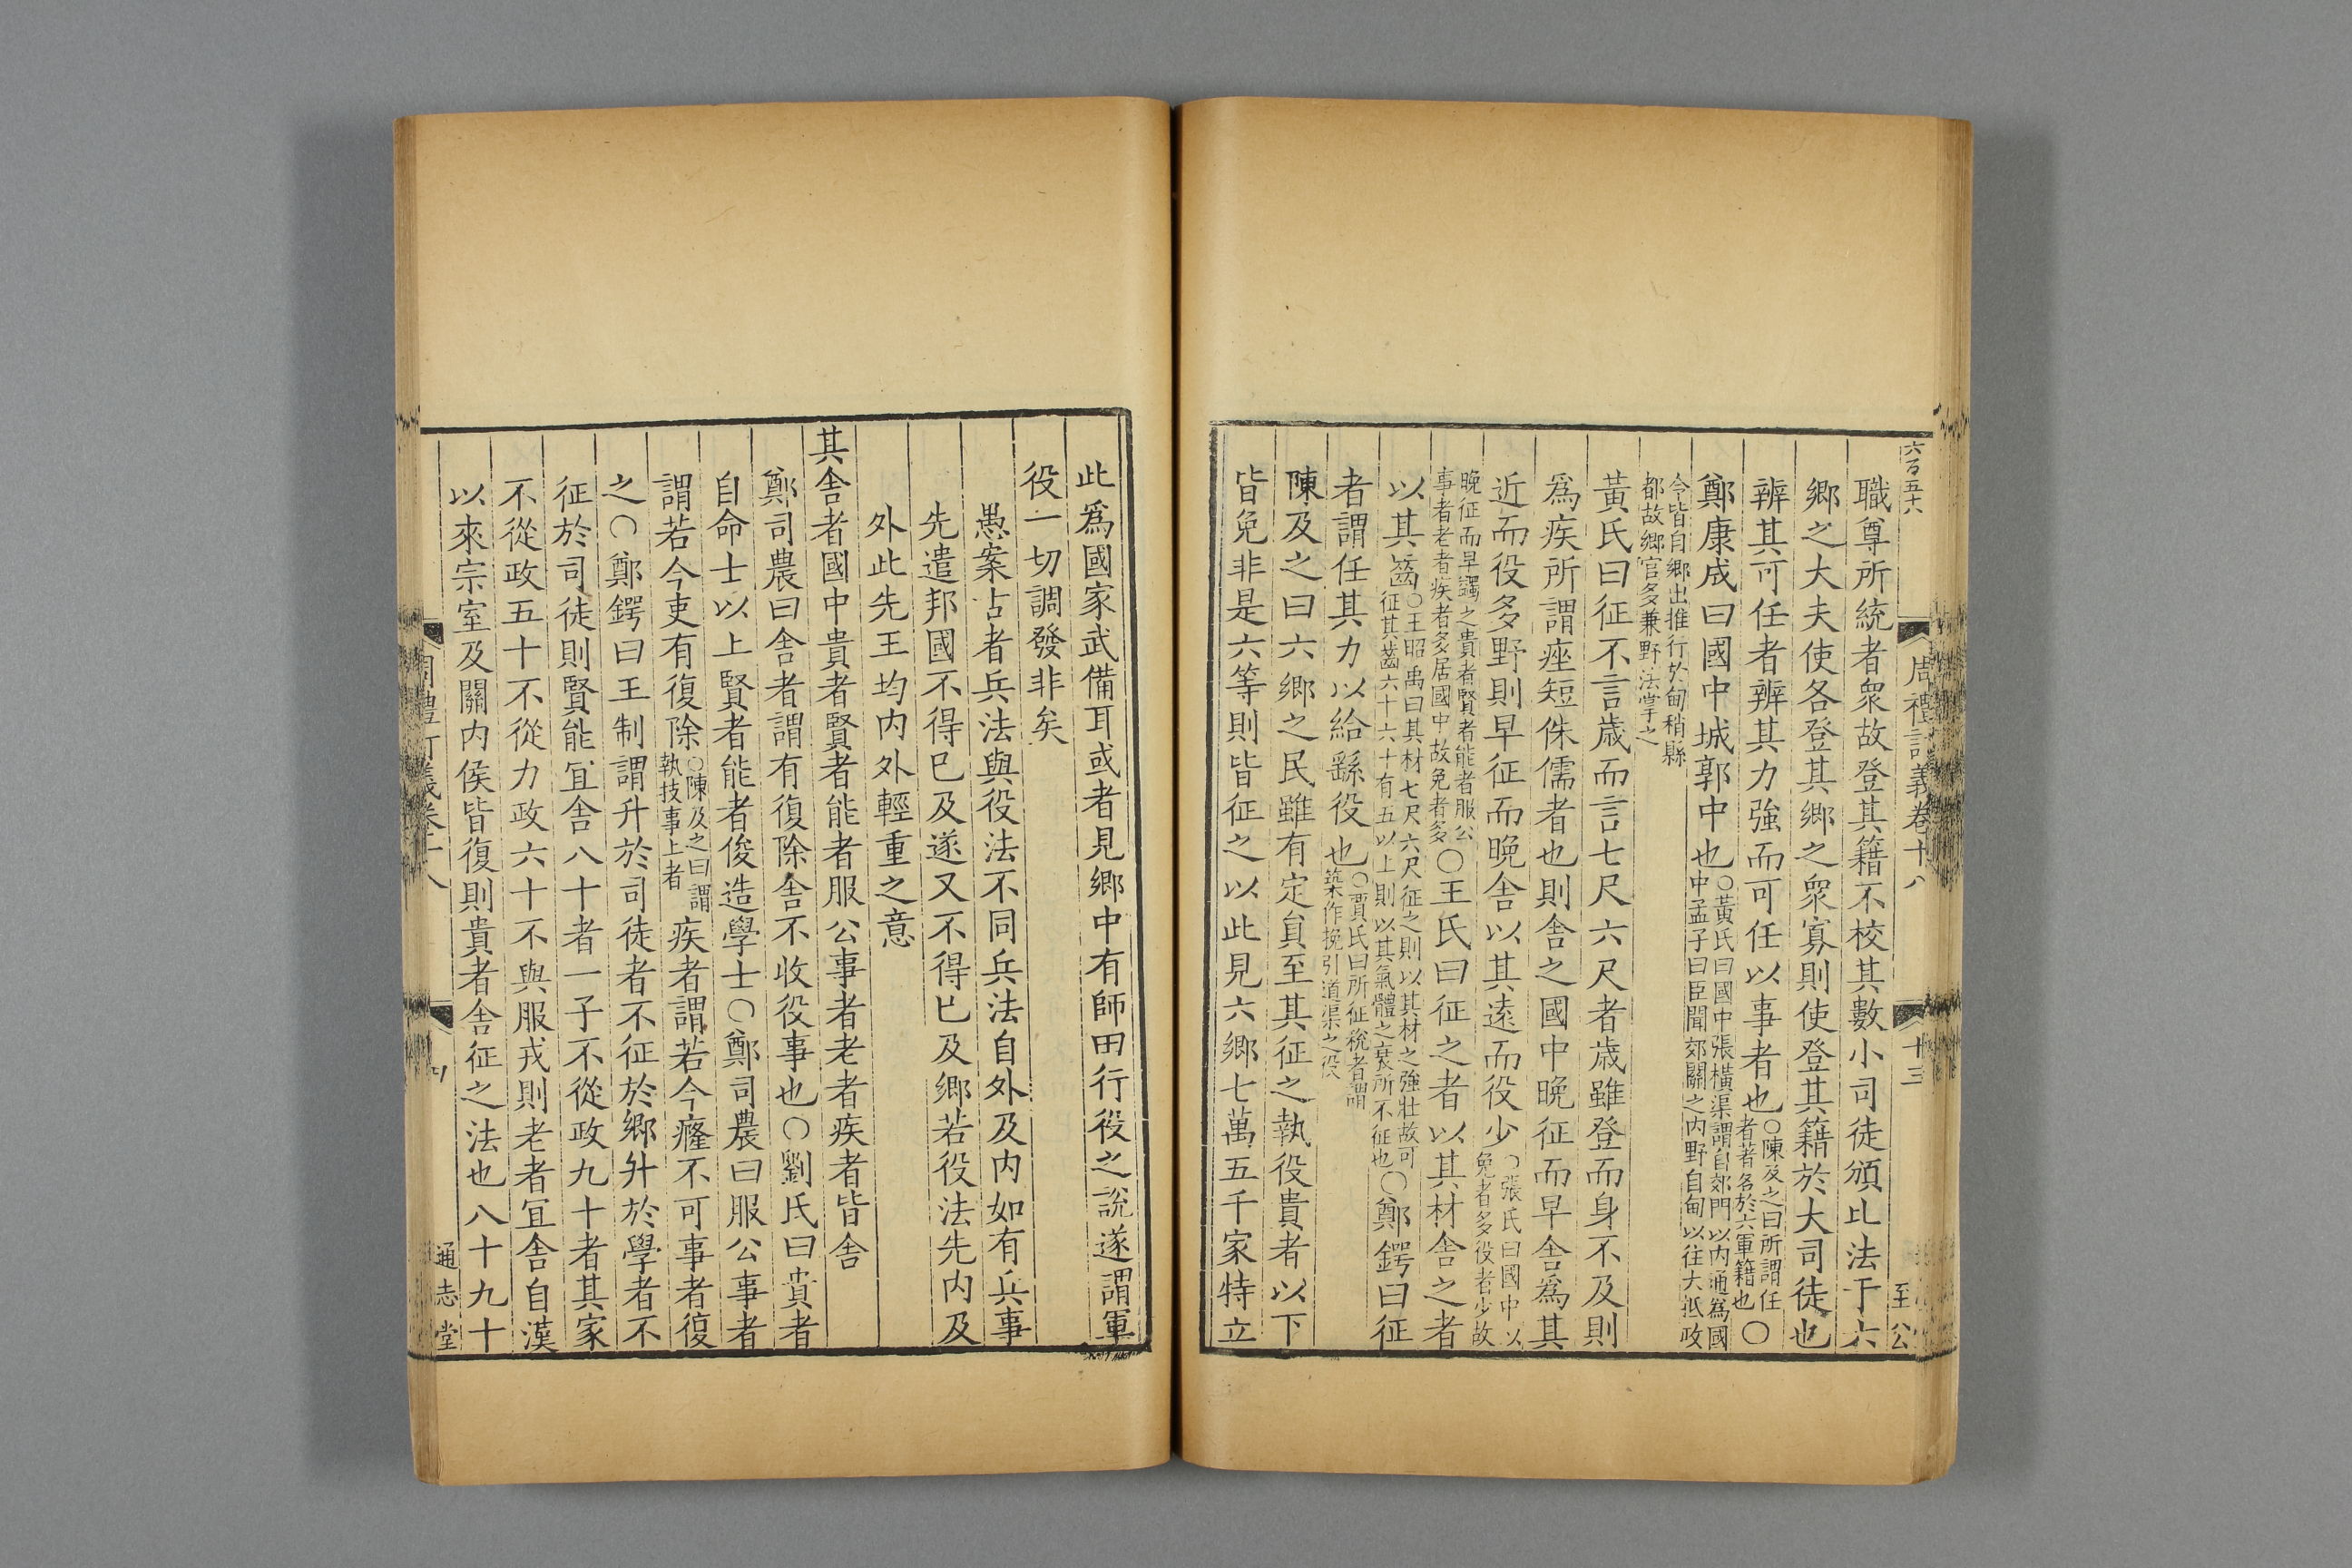 六百五十六
周禮訂義卷十八
十三
至公
職尊所統者衆故登其籍不校其數小司徒頒比法于六
鄉之大夫使各登其鄉之衆寡則使登其籍於大司徒也
辨其可任者辨其力強而可任以事者也○陳及之曰所謂任者著名於六軍籍也○
鄭康成曰國中城郭中也○黃氏曰國中張橫渠謂自郊門以內通爲國中孟子曰臣聞郊關之內野自甸以往大抵政
今皆自鄉出推行於甸稍縣都故鄉官多兼野法掌之
黃氏曰征不言歲而言七尺六尺者歲雖登而身不及則
爲疾所謂痤短侏儒者也則舍之國中晚征而早舍爲其
近而役多野則早征而晚舍以其遠而役少○張氏曰國中以免者多役者少故
晚征而早蠲之貴者賢者能者服公事者老者疾者多居國中故免者多○王氏曰征之者以其材舍之者
以其齒○王昭禹曰其材七尺六尺征之則以其材之強壯故可征其齒六十六十有五以上則以其氣體之衰所不征也○鄭鍔曰征
者謂任其力以給繇役也○賈氏曰所征稅者謂築作挽引道渠之役
陳及之曰六鄉之民雖有定員至其征之執役貴者以下
皆免非是六等則皆征之以此見六鄉七萬五千家特立
此爲國家武備耳或者見鄉中有師田行役之說遂謂軍
役一切調發非矣
愚案占者兵法與役法不同兵法自外及內如有兵事
先遣邦國不得已及遂又不得已及鄉若役法先內及
外此先王均內外輕重之意
其舍者國中貴者賢者能者服公事者老者疾者皆舍
鄭司農曰舍者謂有復除舍不收役事也○劉氏曰貴者
自命士以上賢者能者俊造學士○鄭司農曰服公事者
謂若今吏有復除○陳及之曰謂執技事上者疾者謂若今癃不可事者復
之○鄭鍔曰王制謂升於司徒者不征於鄉升於學者不
征於司徒則賢能宜舍八十者一子不從政九十者其家
不從政五十不從力政六十不與服戎則老者宜舍自漢
以來宗室及關內侯皆復則貴者舍征之法也八十九十
通志堂